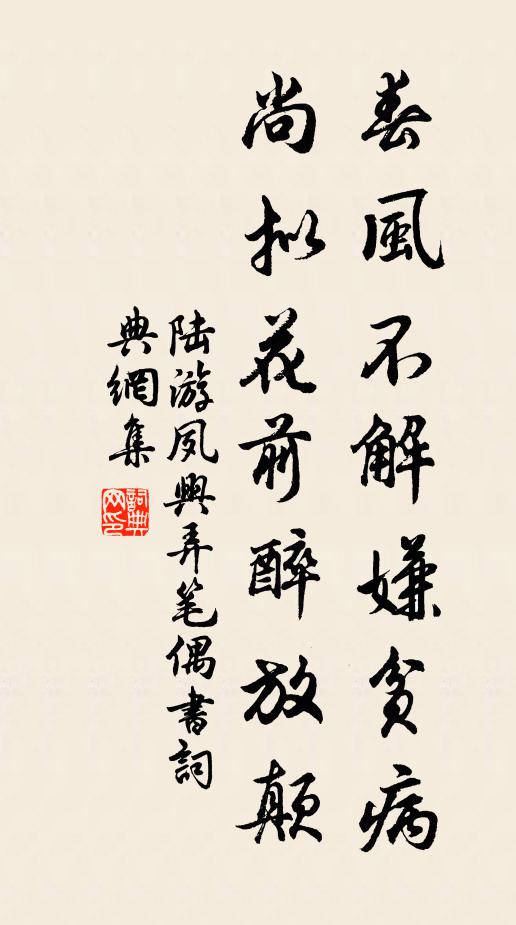 春風不解嫌貧病
尚拟花前醉放顛
陆游夙興弄笔偶書詞
典網集
詞典網印